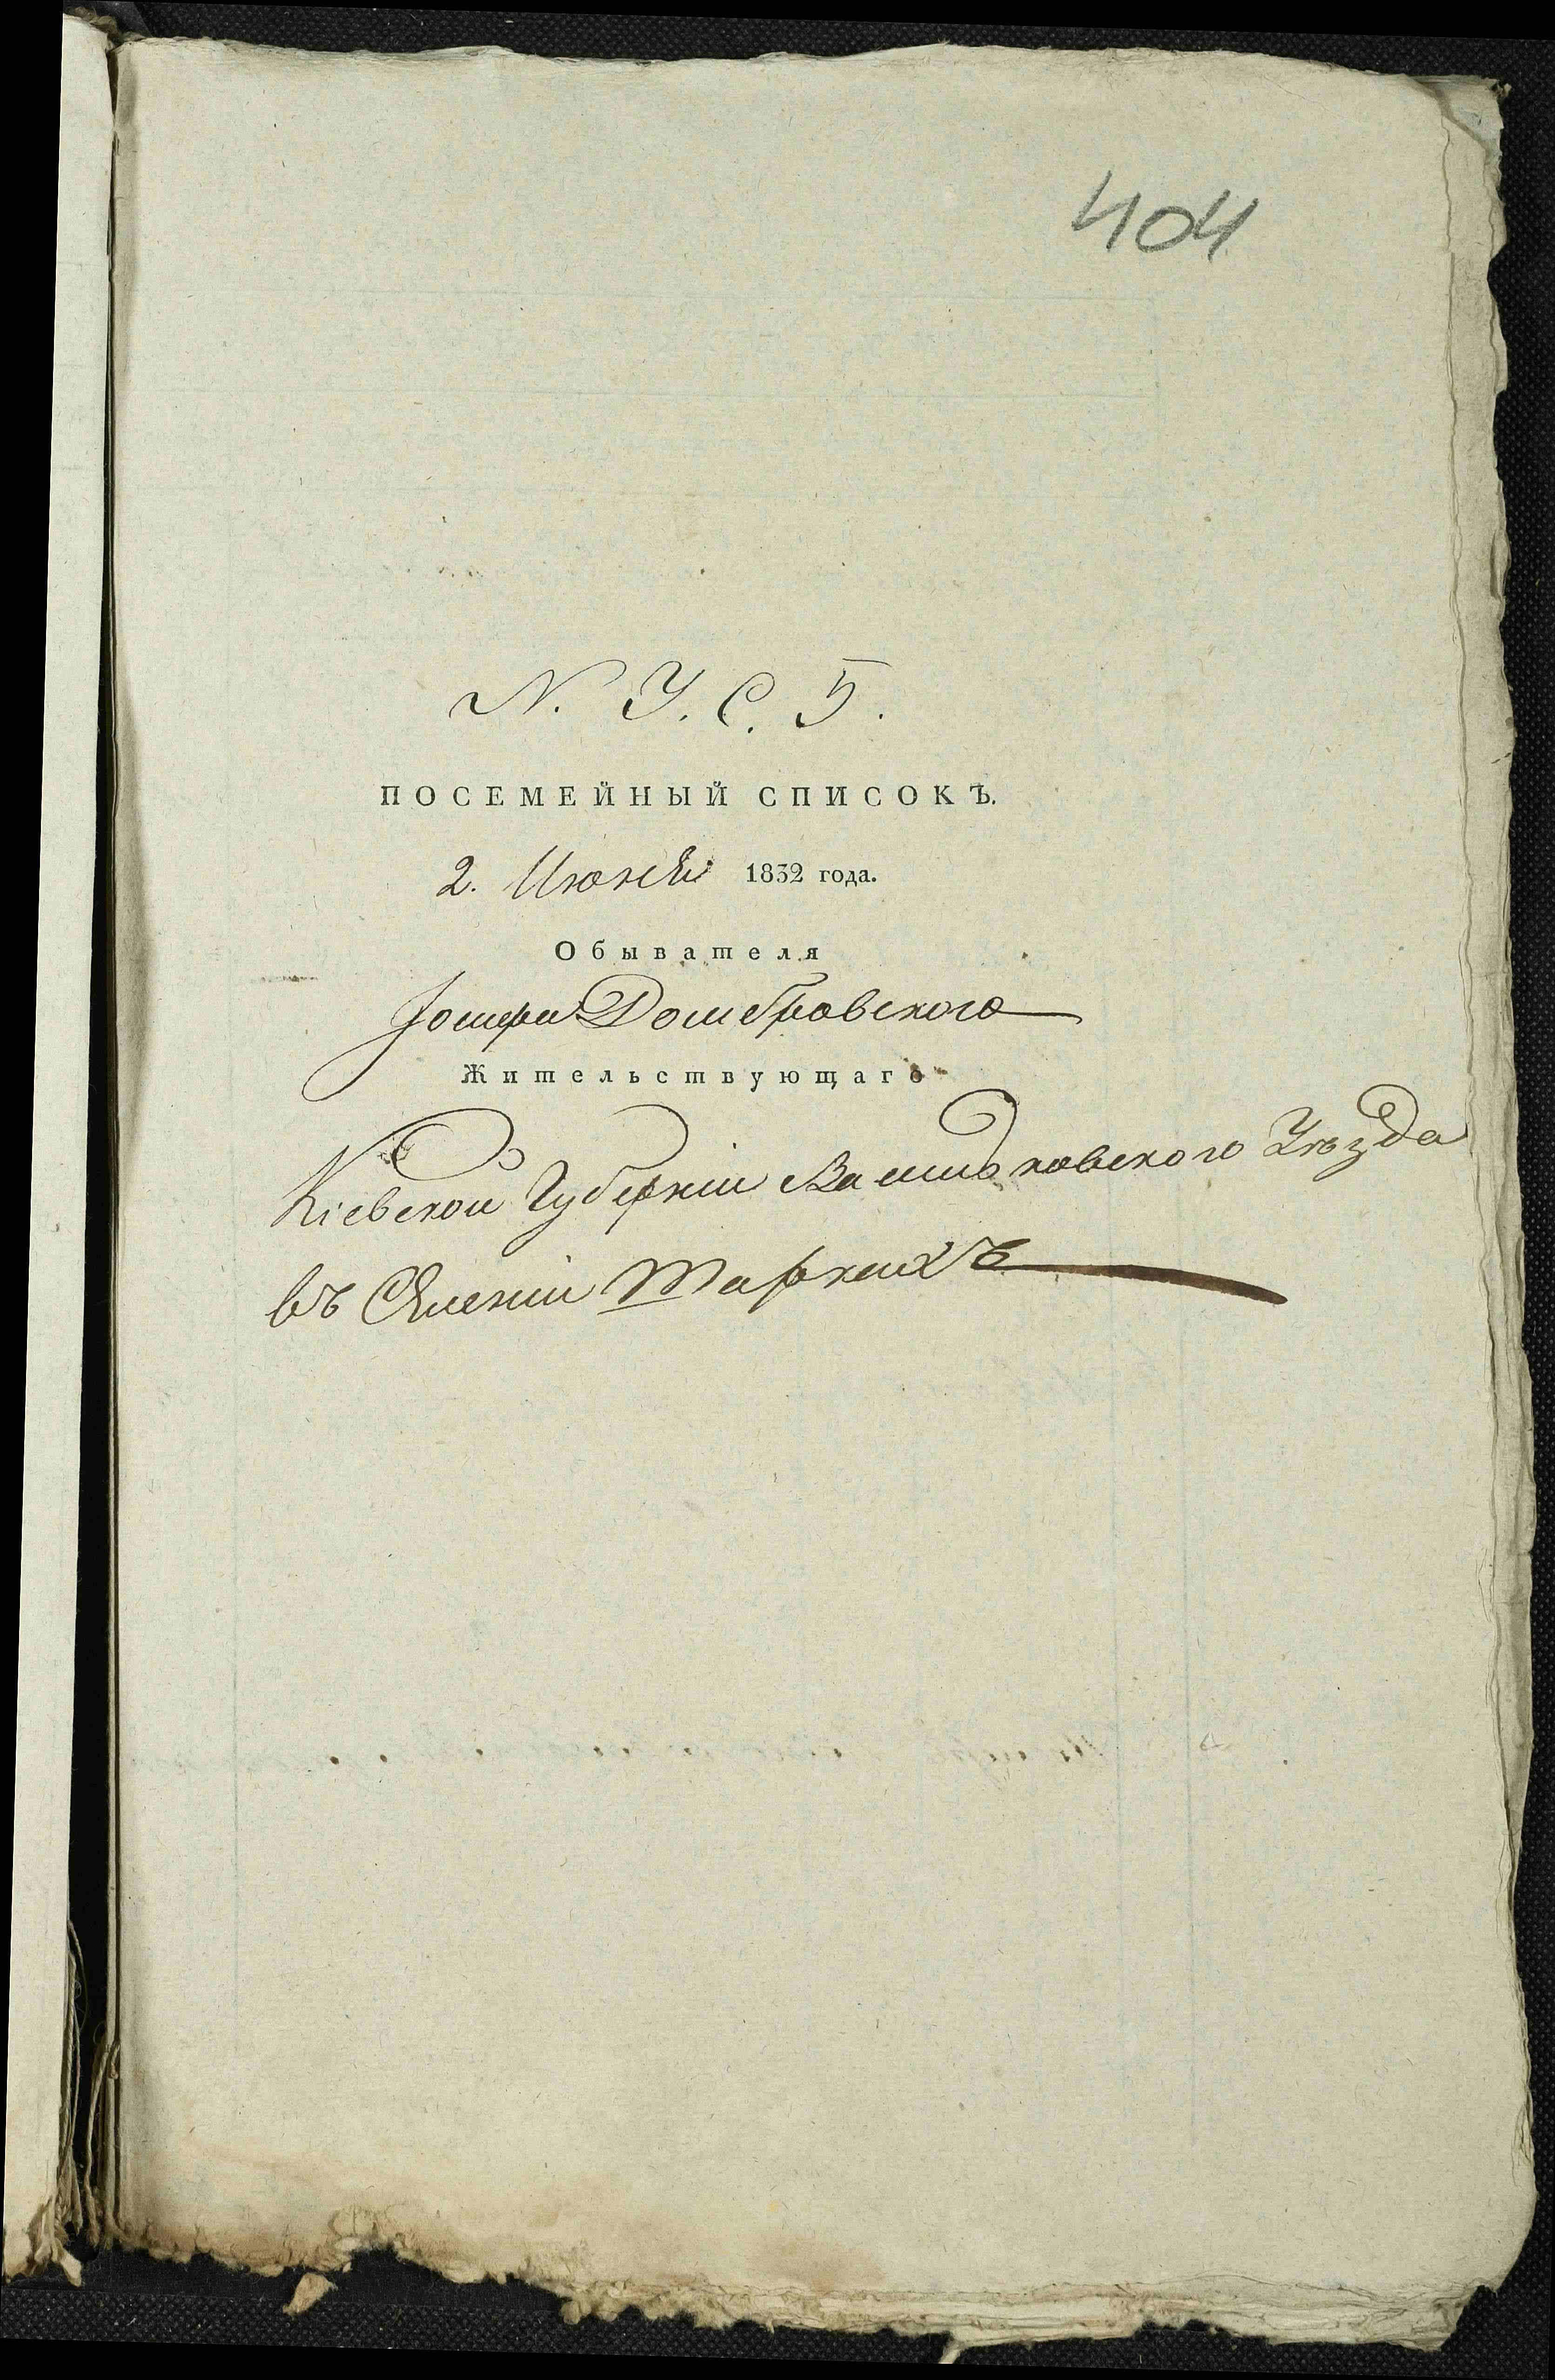 404
N. У. С. 5.
ПОСЕМЕЙНЫЙ СПИСОКЪ.
2. Июня 1832 года.
Обывателя
Іосифа Домбровского
Жительствующаго
Кіевской Губерніи Василковского Уѣзда
въ Имении